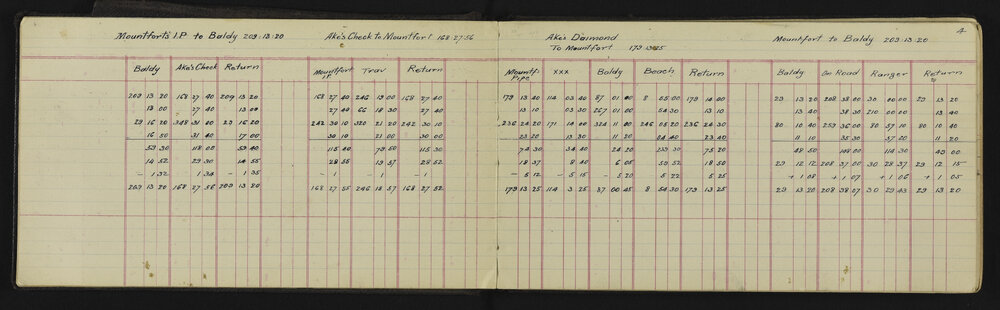 4
Mountfort's I.P to Baldy 209·13·20 Ake's Check to Mountfort 168·27·56 Ake's Daimond Mountfort to Baldy 209·13·20
To Mountfort 179·13·25
Baldy Ake's Check Return Mountfort I.P. Trav Return Mountf. Pipe XXX Baldy Beach Return Baldy On Road Ranger Return
209 13 20 168 27 40 209 13 20 168 27 40 246 19 00 168 27 40 179 13 40 114 03 40 87 01 00 8 55 00 179 14 00 29 13 20 208 38 00 30 00 00 29 13 20
13 00 27 40 13 00 27 40 66 18 30 27 40 13 10 03 30 267 01 00 54 30 13 10 13 40 38 30 210 00 00 13 40
29 16 20 348 31 40 29 16 20 242 30 10 320 21 20 242 30 10 236 24 20 171 14 00 324 11 40 246 05 20 236 24 30 80 10 40 259 36 00 80 57 10 80 10 40
16 50 31 40 17 00 30 10 21 00 30 00 23 20 13 30 11 20 04 40 23 40 11 10 35 30 57 20 11 20
59 30 118 00 59 40 115 40 79 50 115 30 74 30 34 40 24 20 75 20 48 50 148 00 114 30 49 00
14 52 29 30 14 55 28 55 19 57 28 52 18 37 8 40 6 05 59 52 18 50 29 12 12 208 37 00 30 28 37 29 12 15
– 1 32 1 34 – 1 35 – 1 – 1 – 1 – 5 12 – 5 15 – 5 20 5 22 5 25 + 1 08 + 1 07 + 1 06 + 1 05
209 13 20 168 27 56 209 13 20 168 27 55 246 18 57 168 27 52 179 13 25 114 3 25 87 00 45 8 54 30 179 13 25 29 13 20 208 38 07 30 29 43 29 13 20